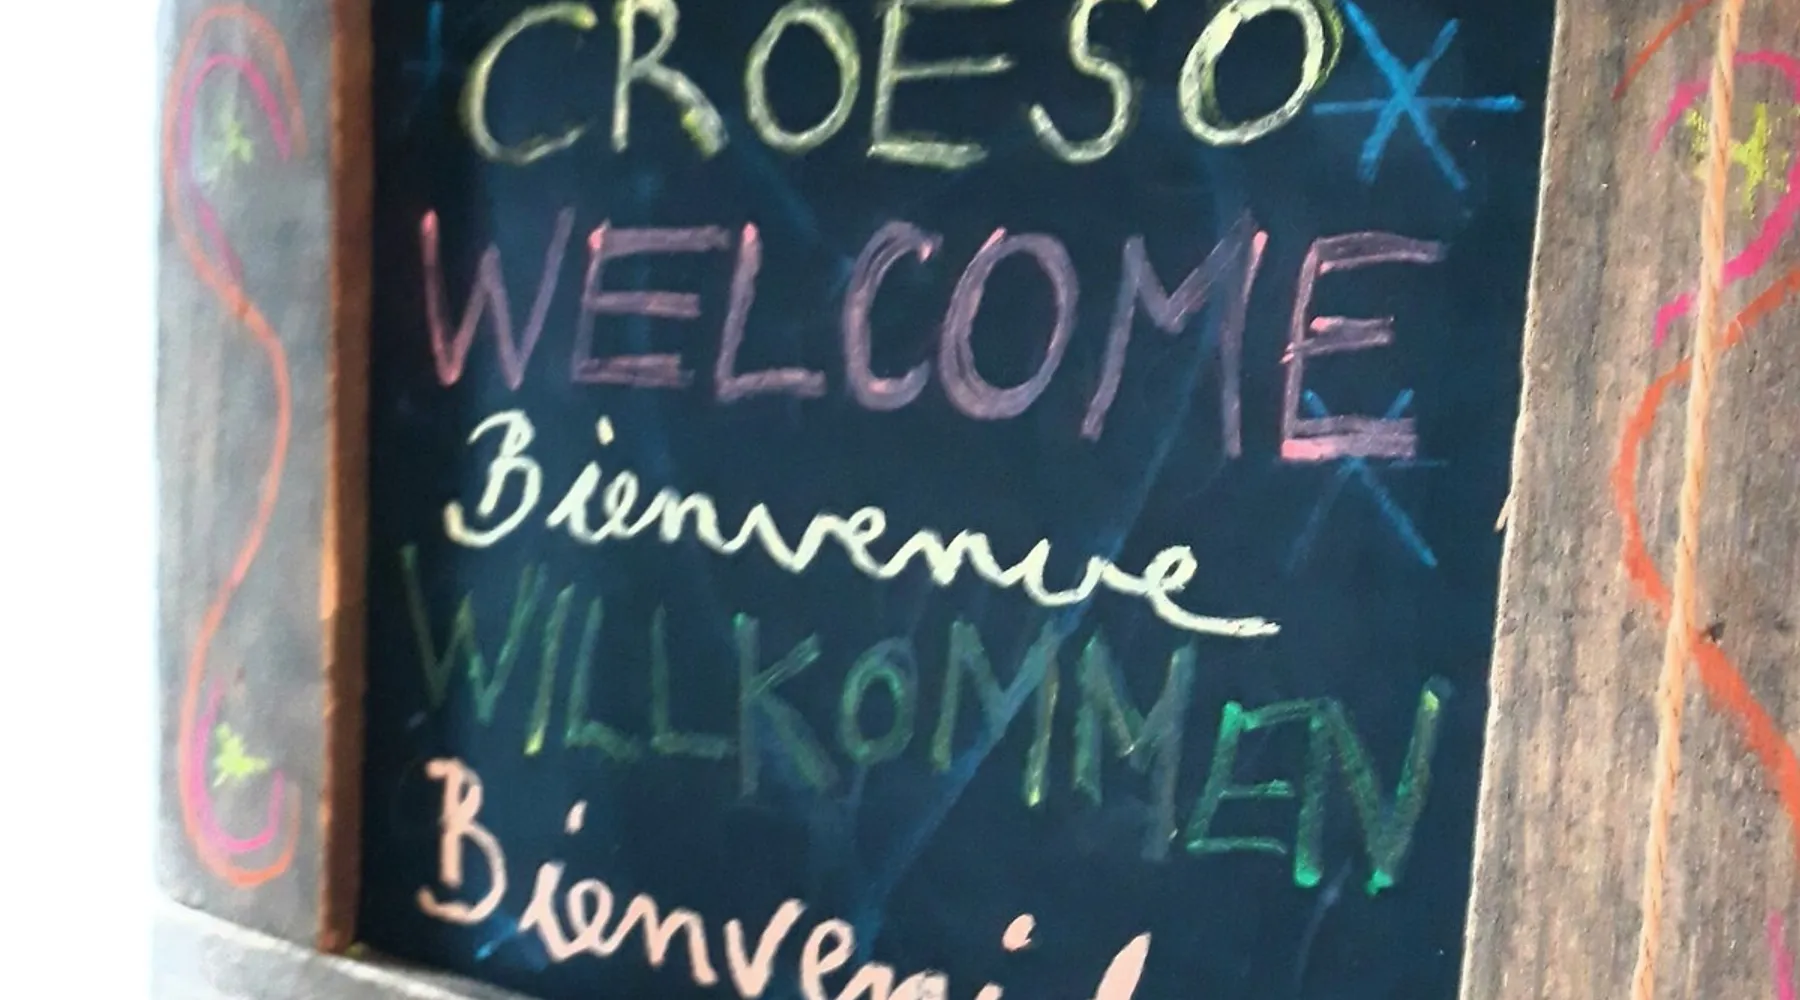 CROESO
WELCOME
Bienvenue
WILLKOMMEN